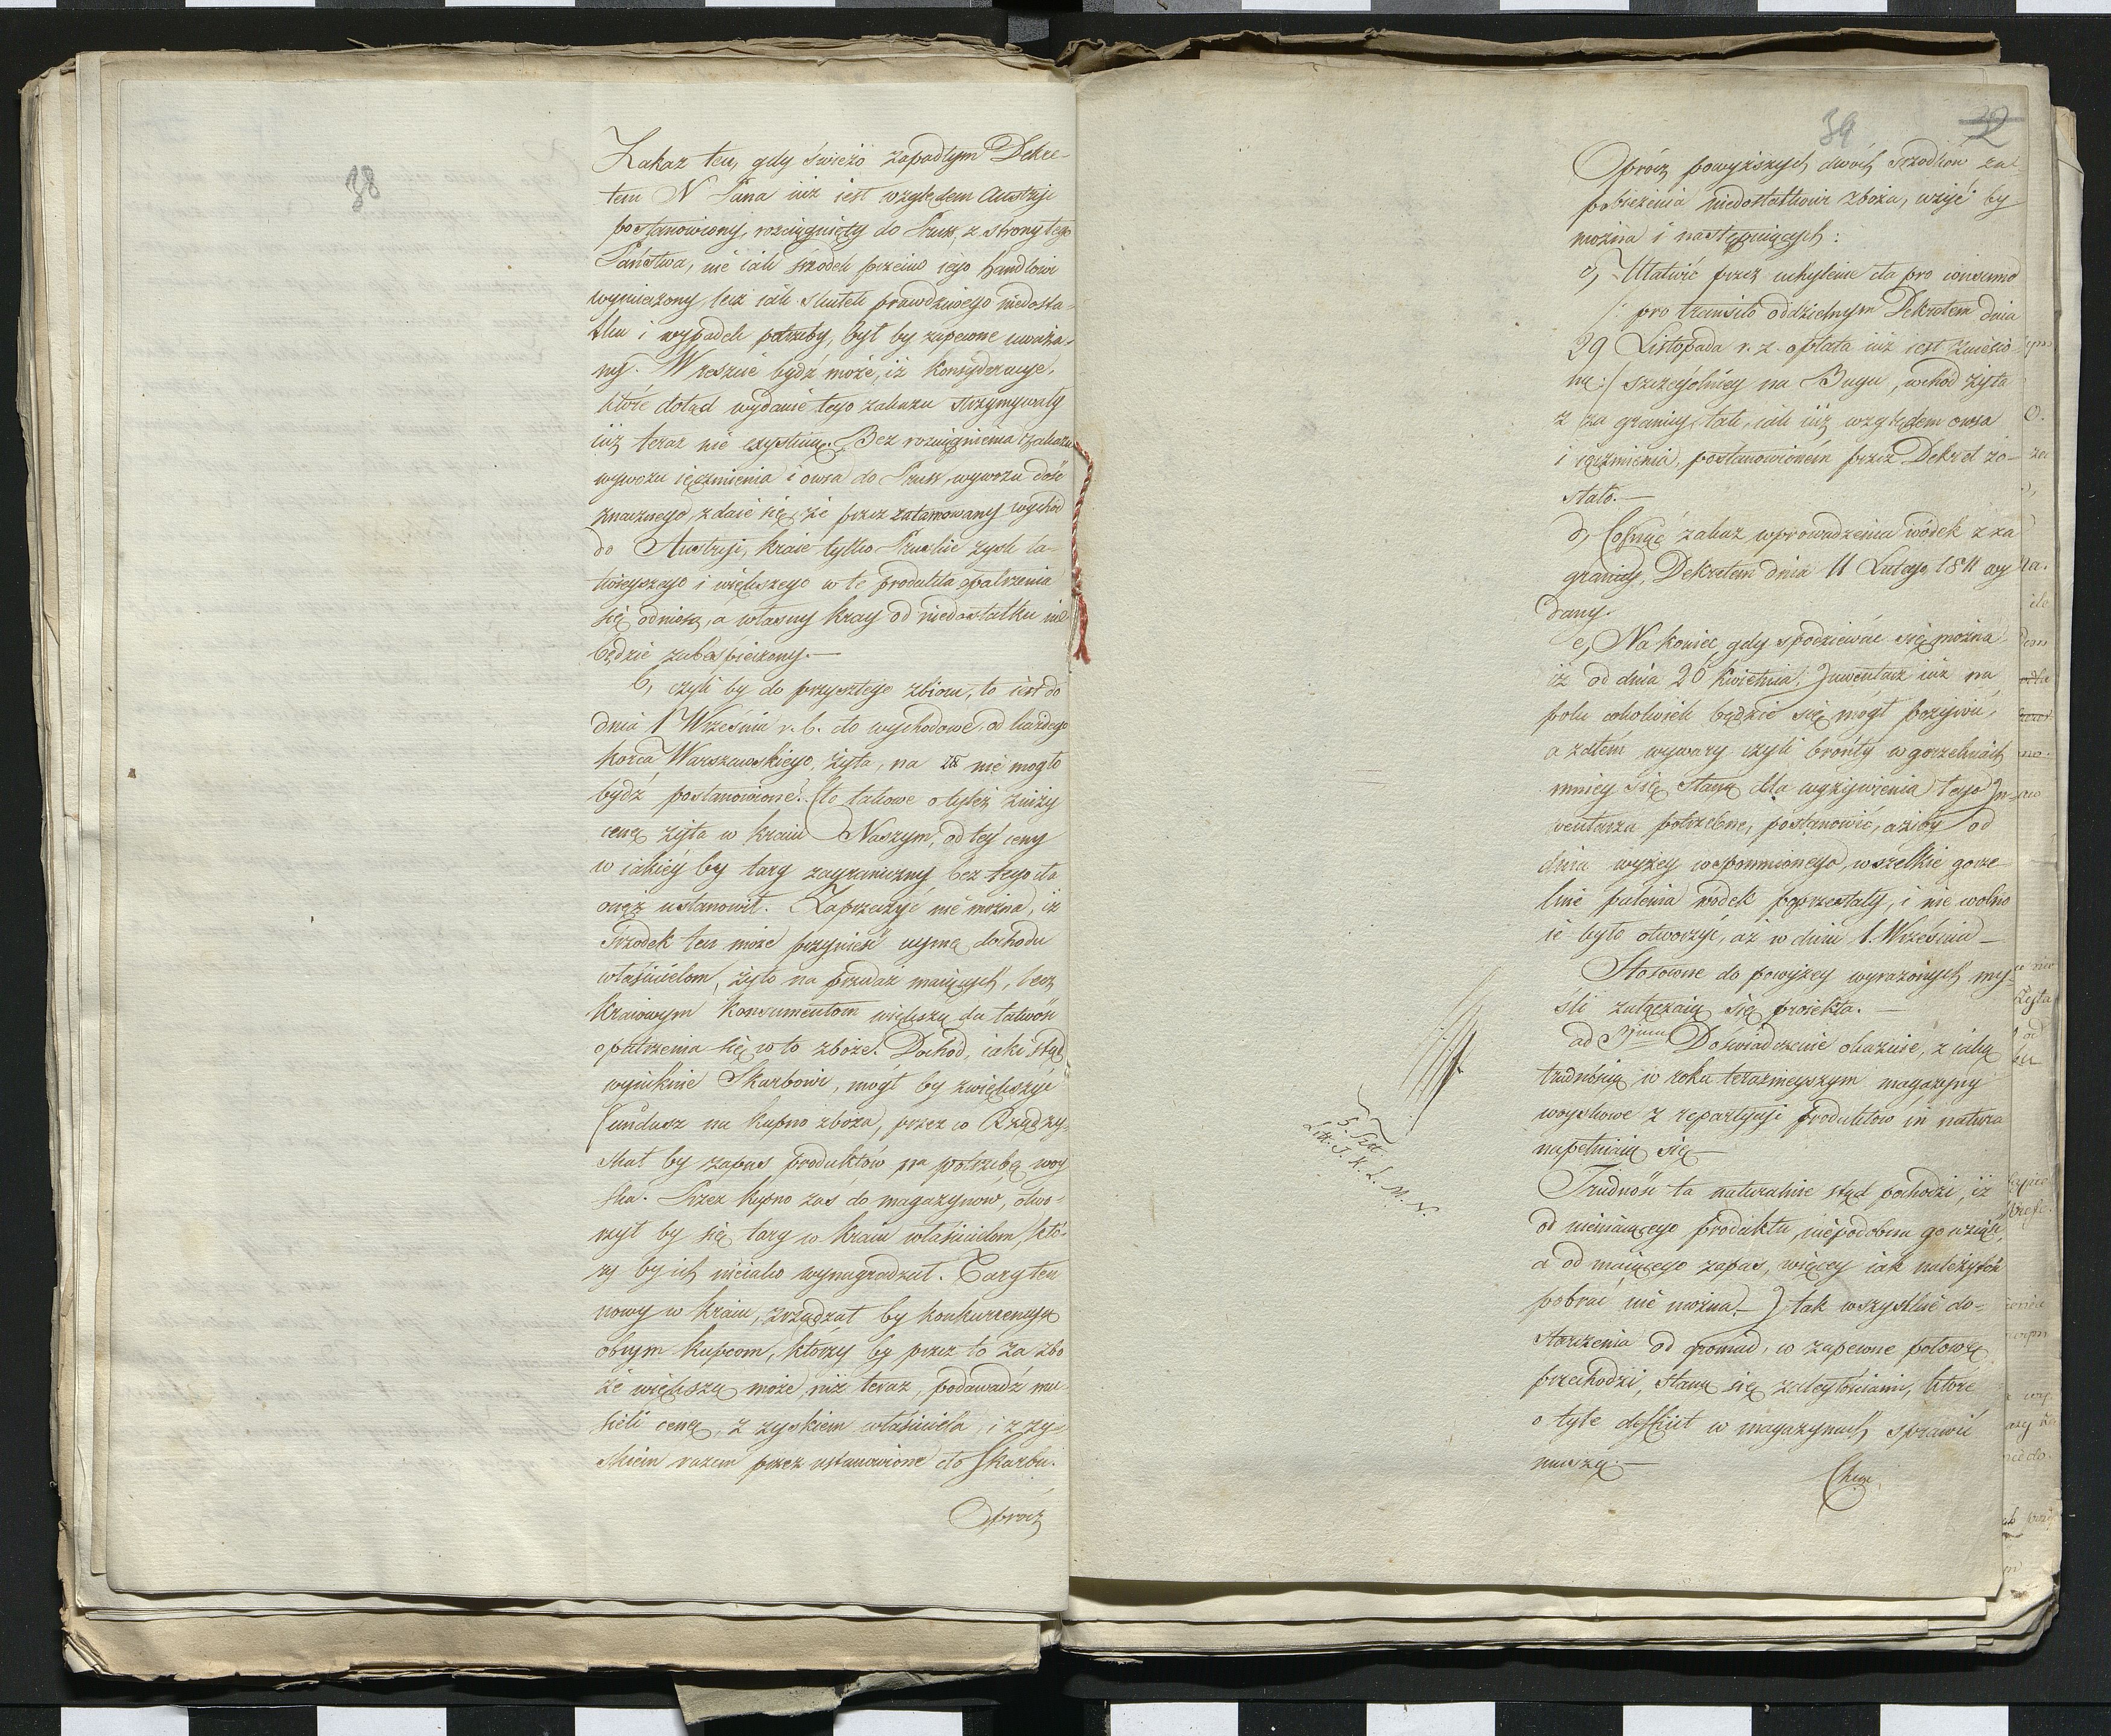 38
Zakaz ten, gdy świeżo zapadłym Dekre-
tem N Pana iuż iest względem Austryi
postanowiony, rozciągnięty do Prus, z strony tego
Państwa, nie iak srzodek przeciw iego handlowi
wymierzony lecz iak skutek prawdziwego niedosta-
tku i wypadek potrzeby, był by zapewne uważa-
ny. W reszcie bydź może, iż konsyderacye,
które dotąd wydanie tego zakazu strzymywały
iuż teraz nie exystuią. Bez rozciągnienia zakazu
wywozu ięczmienia i owsa do Prus, wywozu dość
znacznego, zdaie się, że przez zatamowany wychód
do Austryi, kraie tylko Pruskie zysk ła-
twieyszego i większego w te produkta opatrzenia
się odniosą, a własny kray od niedostatku nie
będzie zabespieczony.—
b, czyli by do przyszłego zbioru, to iest do
dnia 1 Września r. b. cło wychodowe, od każdego
korca Warszawskiego, żyta, na nie mogło
bydź postanowione? Cło takowe o tyleż zniży
cenę żyta w kraiu Naszym, od tey ceny
w iakiey by targ zagraniczny bez tego cła
onęż ustanowił. Zaprzeczyć nie można, iż
srzodek ten może przynieść uymę dochodu
właścicielom, żyto na przedaż maiących, lecz
kraiowym konsumentom większą da łatwość
opatrzenia się w to zboże. Dochód, iaki stąd
wyniknie Skarbowi, mógł by zwiększyć
fundusz na kupno zboża, przez co Rząd zy-
skał by zapas produktów na potrzebę woy
ska. Przez kupno zaś do magazynów, otwo-
rzył by się targ w kraiu właścicielom, któ-
ry by ich nieiako wynagradzał. Targ ten
nowy w kraiu, zrządzał by konkurrencyą
obcym kupcom, którzy by przez to za zbo
że większą może, niż teraz, podawadź mu-
sieli cenę, z zyskiem właściciela, i z zy-
skiem razem przez ustanowione cło Skarbu.
Oprócz
39
32
Oprócz powyższych dwóch srzodków za-
pobieżenia niedostatkowi zboża, użyć by
można i następuiących:
c, Ułatwić przez uchylenie cła pro consumo
/: pro transito oddzielnym Dekretem dnia
29 Listopada r. z. opłata iuż iest zniesio-
na :/ szczególniey na Bugu, wchod żyta
z za granicy, tak, iak iuż względem owsa
i ięczmienia, postanowionem przez Dekret zo-
stało.—
d, Cofnąć zakaz wprowadzenia wódek z za
granicy, Dekretem dnia 11 Lutego 1811 wy
dany.
e, Na koniec, gdy spodziewać się można
iż od dnia 20 Kwietnia, Inwentarz iuż na
polu cokolwiek będzie się mógł pożywić,
a zatem wywary czyli brohy w gorzelniach
mniey się staną dla wyżywienia tego In-
wentarza potrzebne, postanowić, ażeby od
dnia wyżey wspomnionego, wszelkie gorze-
lnie palenia wódek poprzestały, i nie wolno
ie było otworzyć, aż w dniu 1. Września —
Stosowne do powyżey wyrażonych my-
śli załączaią się proiekta. —
ad 3tium Doświadczenie okazuie, z iaką
trudnością w roku teraznieyszym magazyny
woyskowe z repartycyi produktów in natura
napełniaią się —
§. Pkt.
Litt. I. K. L. M. N.
Trudność ta naturalnie stąd pochodzi, iż
od niemaiącego produktu, niepodobna go wziąć,
a od maiącego zapas, więcey iak należytość
pobrać nie można.— I tak wszystkie do-
starczenia od gromad, co zapewne połowę
przechodzi, staną się zaległościami, które
o tyle deficit w magazynach sprawić
muszą.—
Chcąc